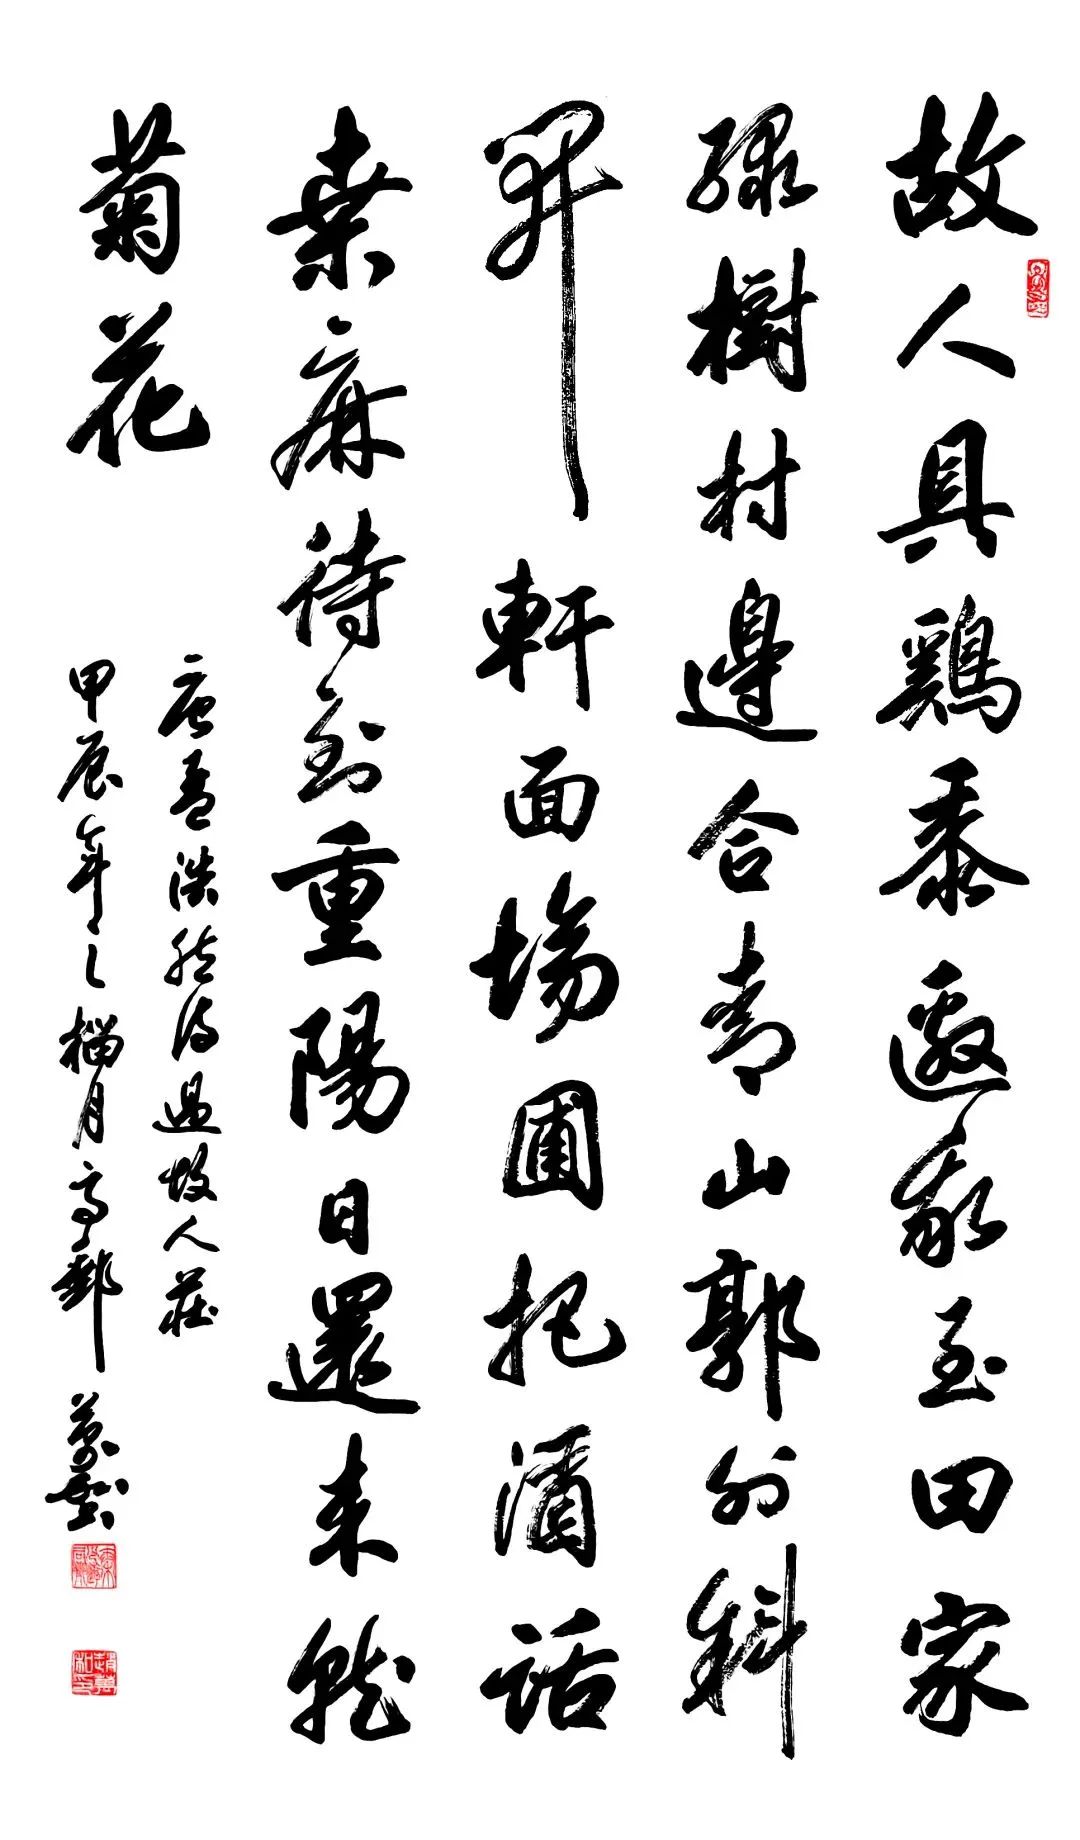 故人具鷄黍邀我至田家
綠樹村邊合青山郭外斜
開軒面場圃把酒話
桑麻待到重陽日還来就
菊花
唐孟浩然詩過故人莊
甲辰年之臘月高郵